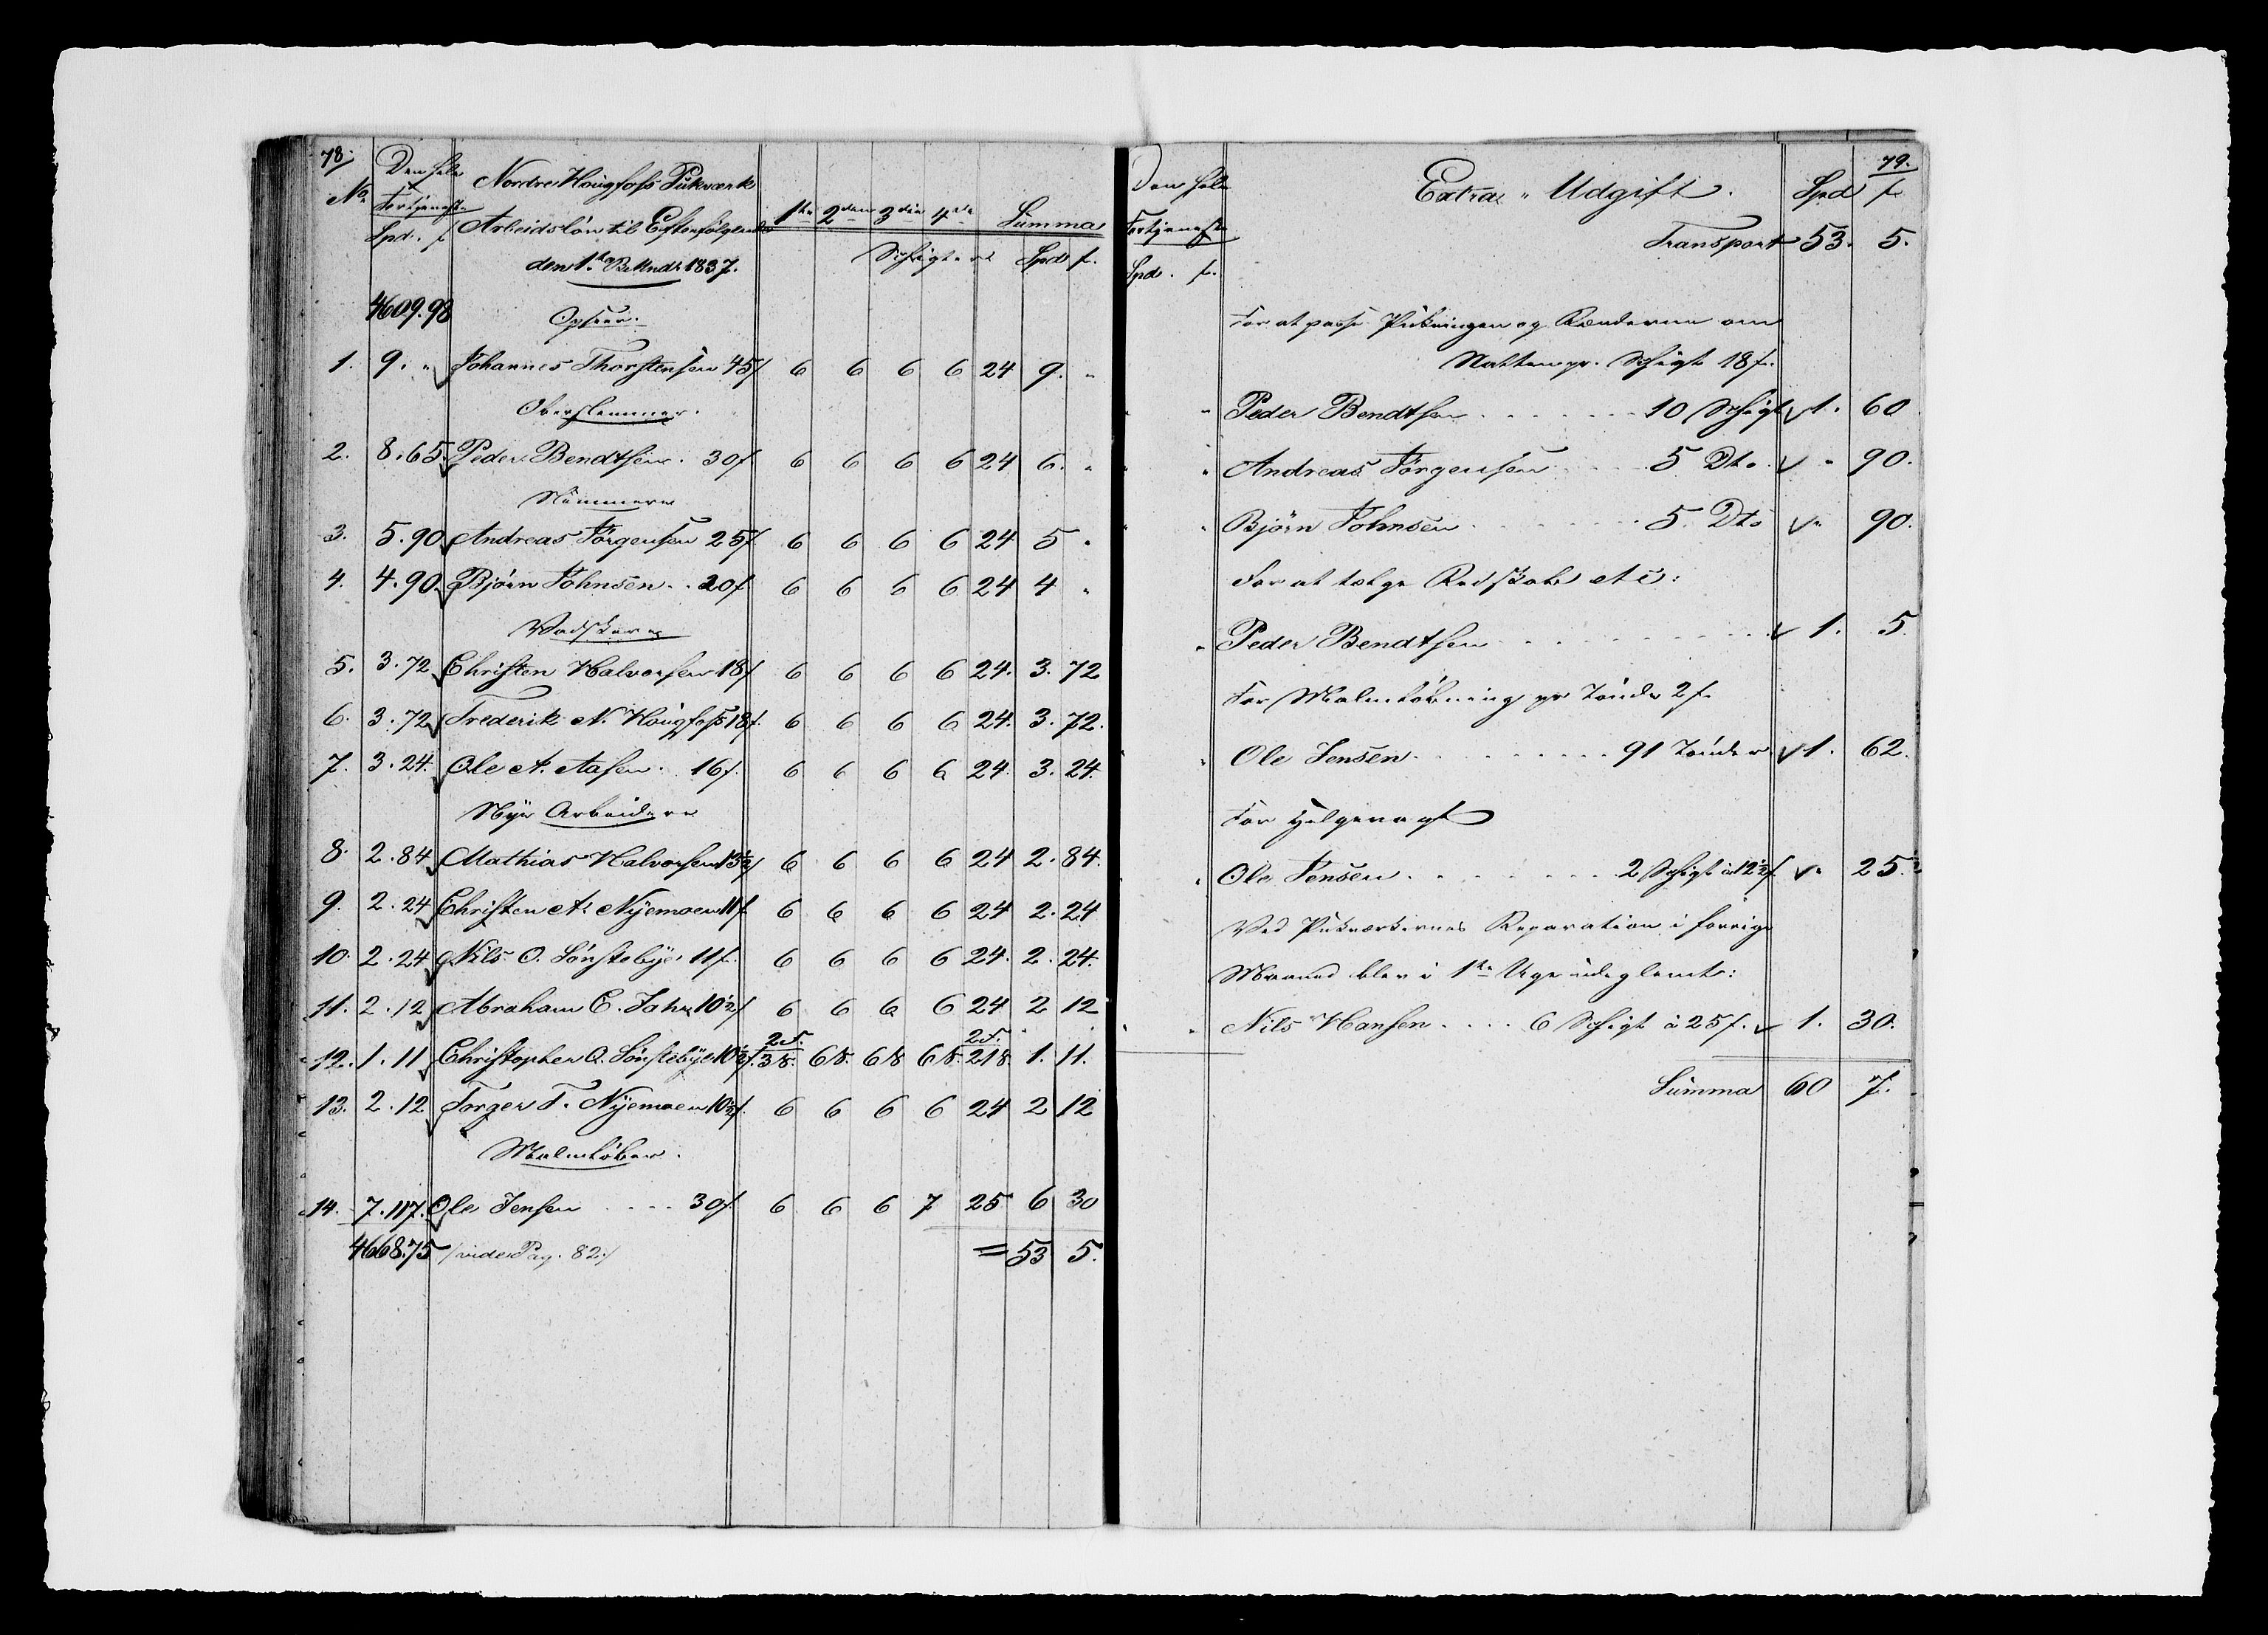 78.
No
Den hele
Fortjeneste
Spd. f
Nordre Hougfoss Pukværk
Arbeidslön til Efterfölgende
den 1ste B. Mnd. 1837.
1ste 2den 3die 4de Summa
Schigter Spd f.
4609.98 Opseer.
1. 9. " Johannes Thorstensen 45f 6 6 6 6 24 9. "
Oberslemmer.
2. 8.65. Peder Bendtsen. 30f 6 6 6 6 24 6. "
3. 5.90 Andreas Jörgensen 25f 6 6 6 6 24 5 "
4. 4.90. Björn Johnsen. . 20f 6 6 6 6 24 4 "
Vadskere
5. 3.72 Christen Halvorsen 18f 6 6 6 6 24. 3. 72
6. 3.72 Frederik N. Hougfoss 18f. 6 6 6 6 24. 3. 72.
7. 3.24. Ole A. Aasen. 16f. 6 6 6 6 24. 3. 24.
Nye Arbeidere
8. 2.84 Mathias Halvorsen 13½f 6 6 6 6 24 2. 84.
9. 2.24 Christen A. Nyemoen 11f 6 6 6 6 24 2. 24
10. 2.24 Nils O. Sönstebye 11f. 6 6 6 6 24. 2. 24.
11. 2.12 Abraham C. Jahr 10½f 6 6 6 6 24 2 12
2S. 2S.
12. 1.11 Christopher O. Sönstebye 10½f. 38. 68. 68 68. 218. 1. 11.
13. 2.12 Torger T. Nyemoen 10½f. 6 6 6 6 24 2 12
Malmköber.
14. 7.117. Ole Jensen . . . . 30f. 6 6 6 7 25 6 30
4668.75 /vide Pag. 82./ = 53 5.
79.
Den hele
Fortjeneste
Spd. f.
Extra " Udgift. Spd f.
Transport 53. 5.
For at passe Pukningen og Renderne om
Natten pr. Schigt 18f.
Peder Bendtsen . . . . . . 10 Schigt 1. 60
Andreas Jörgensen . . . . 5 Dto. " 90.
Björn Johnsen . . . . . . 5. Dto " 90.
For at tælge Redskab etc:
Peder Bendtsen . . . . . . . . . . 1. 5.
For Malmköbning pr Tönde 2f.
Ole Jensen . . . . . . . 91 Tönder 1. 62.
For Helgevagt
Ole Jensen . . . . . . . 2 Schigt à 12½f. " 25.
Ved Pukværkernes Reparation i forrige
Maaned blev i 1ste Uge udeglemt:
Nils Hansen . . . . 6 Schigt à 25f. 1. 30.
Summa 60 7.